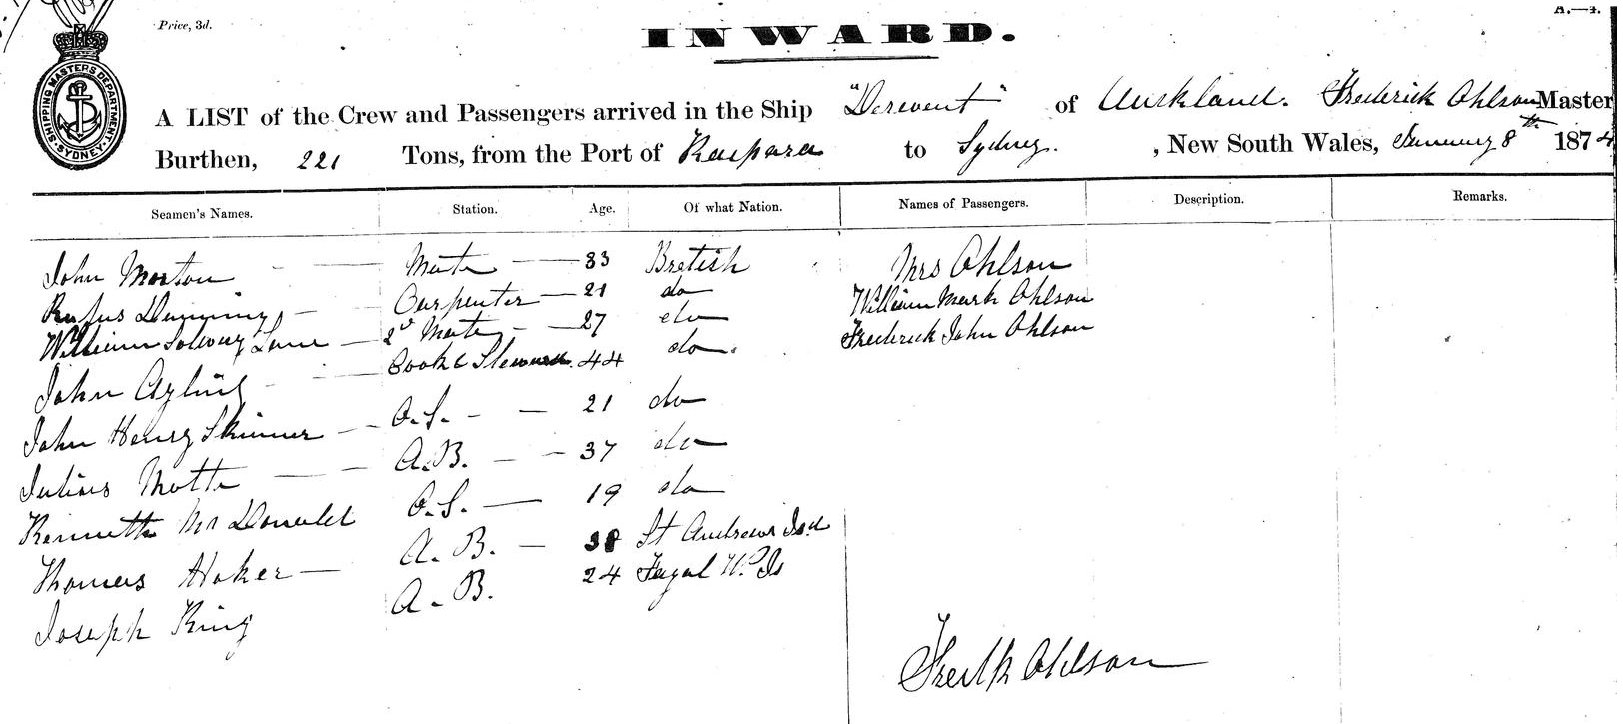 A.—4.
Price, 3d.
INWARD.
SHIPPING MASTERS DEPARTMENT SYDNEY
A LIST of the Crew and Passengers arrived in the Ship "Derwent" of Auckland. Frederick Ohlson Master
Burthen, 221 Tons, from the Port of Kaipara to Sydney. , New South Wales, January 8th 1874
Seamen's Names. Station. Age. Of what Nation. Names of Passengers. Description. Remarks.
John Morton — Mate — 33 British Mrs Ohlson
Rufus Dunning — Carpenter — 21 do William Mark Ohlson
William Lane — 2d Mate — 27 do Frederick John Ohlson
John Ayling — Cook & Steward. 44 do.
John Henry Skinner — O.S. — 21 do
Julius Motte — A.B. — 37 do
Kenneth McDonald O.S. — 19 do
Thomas Hoker — A.B. — 38 St Andrews Isd
Joseph King A.B. 24 Fayal W. Is
Fredk Ohlson